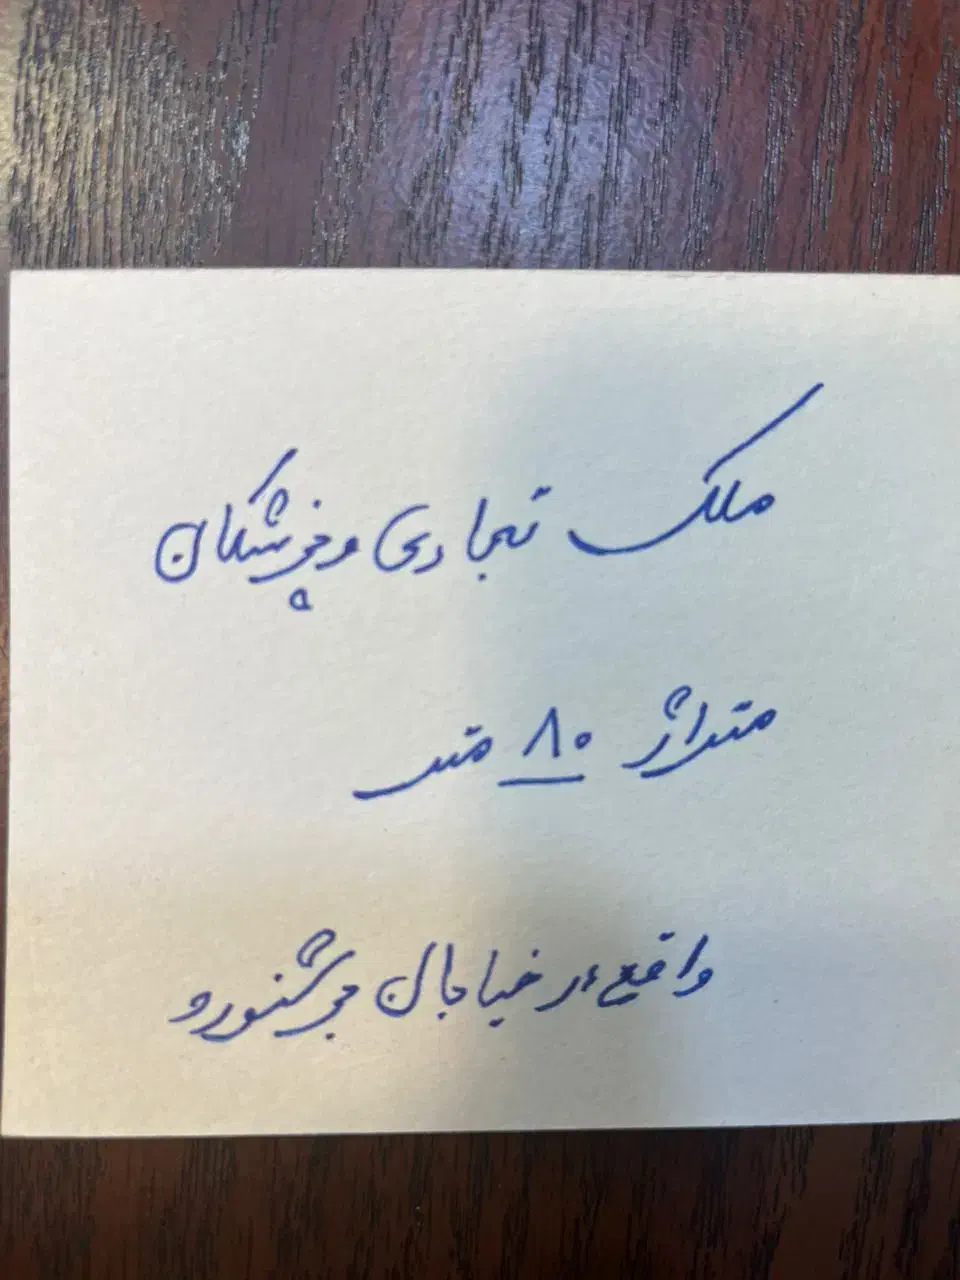 ملک تجاری و پزشکان
متراژ ۸۰ متر
واقع در خیابان